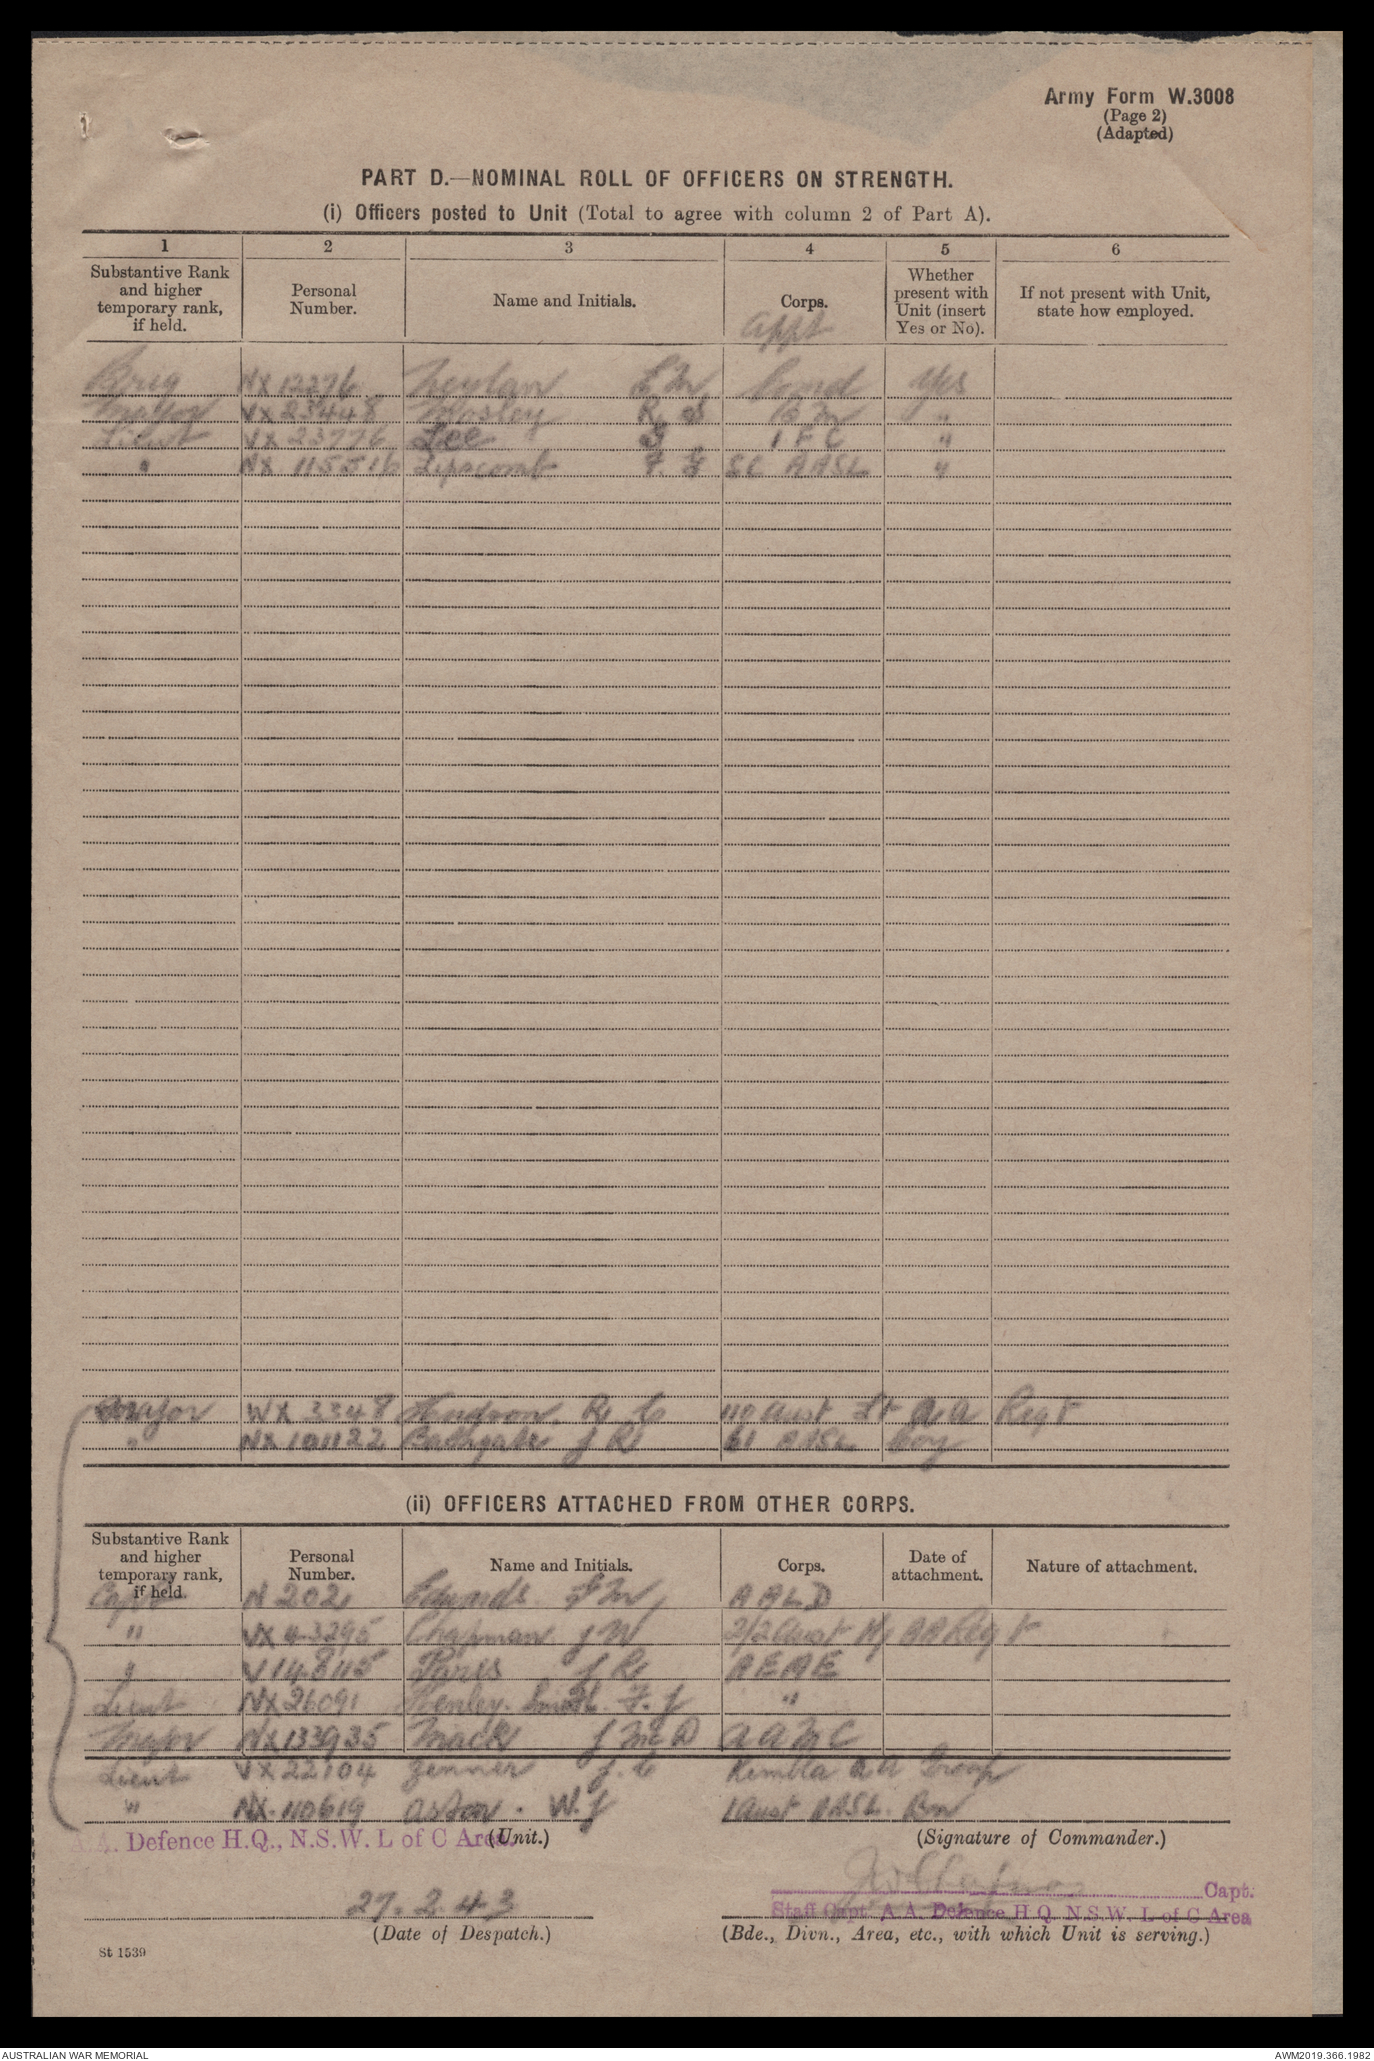 Army Form W.3008
(Page 2)
(Adapted)
PART D.—NOMINAL ROLL OF OFFICERS ON STRENGTH.
(i) Officers posted to Unit (Total to agree with column 2 of Part A).
1 2 3 4 5 6
Substantive Rank and higher temporary rank, if held.
Personal Number.
Name and Initials.
Corps.
Appt
Whether present with Unit (insert Yes or No).
If not present with Unit, state how employed.
Brig NX 12276 Neylan Comd Yes
Major VX 23448 Mosley R. S B M "
Lieut VX 23776 Lee I F C "
" NX 115516 Lipscomb F. G SC AASL "
Major WX 3348 Hudson. R C 110 Aust Lt A A Regt
" NX 101122 Bathgate J R 61 AASL Coy
(ii) OFFICERS ATTACHED FROM OTHER CORPS.
Substantive Rank and higher temporary rank, if held.
Personal Number.
Name and Initials.
Corps.
Date of attachment.
Nature of attachment.
Capt N 202 M AALD
" VX 43295 Chapman J W 2/2 Aust Hy AA Regt
" V148115 Paris J R AEME
Lieut NX 26091 Henley. Smith. F. J "
Major NX133935 Mack J McD AAMC
Lieut VX 22104 Jenner J. C Kembla AA Group
" NX. 110619 Aston. W. J 1 Aust AASL. Bn
A.A. Defence H.Q., N.S.W. L of C Area.
(Unit.)
(Signature of Commander.)
Capt.
Staff Capt. A A. Defence H Q. N.S.W. L of C Area
27. 2. 43
(Date of Despatch.)
(Bde., Divn., Area, etc., with which Unit is serving.)
St 1539
AUSTRALIAN WAR MEMORIAL
AWM2019.366.1982